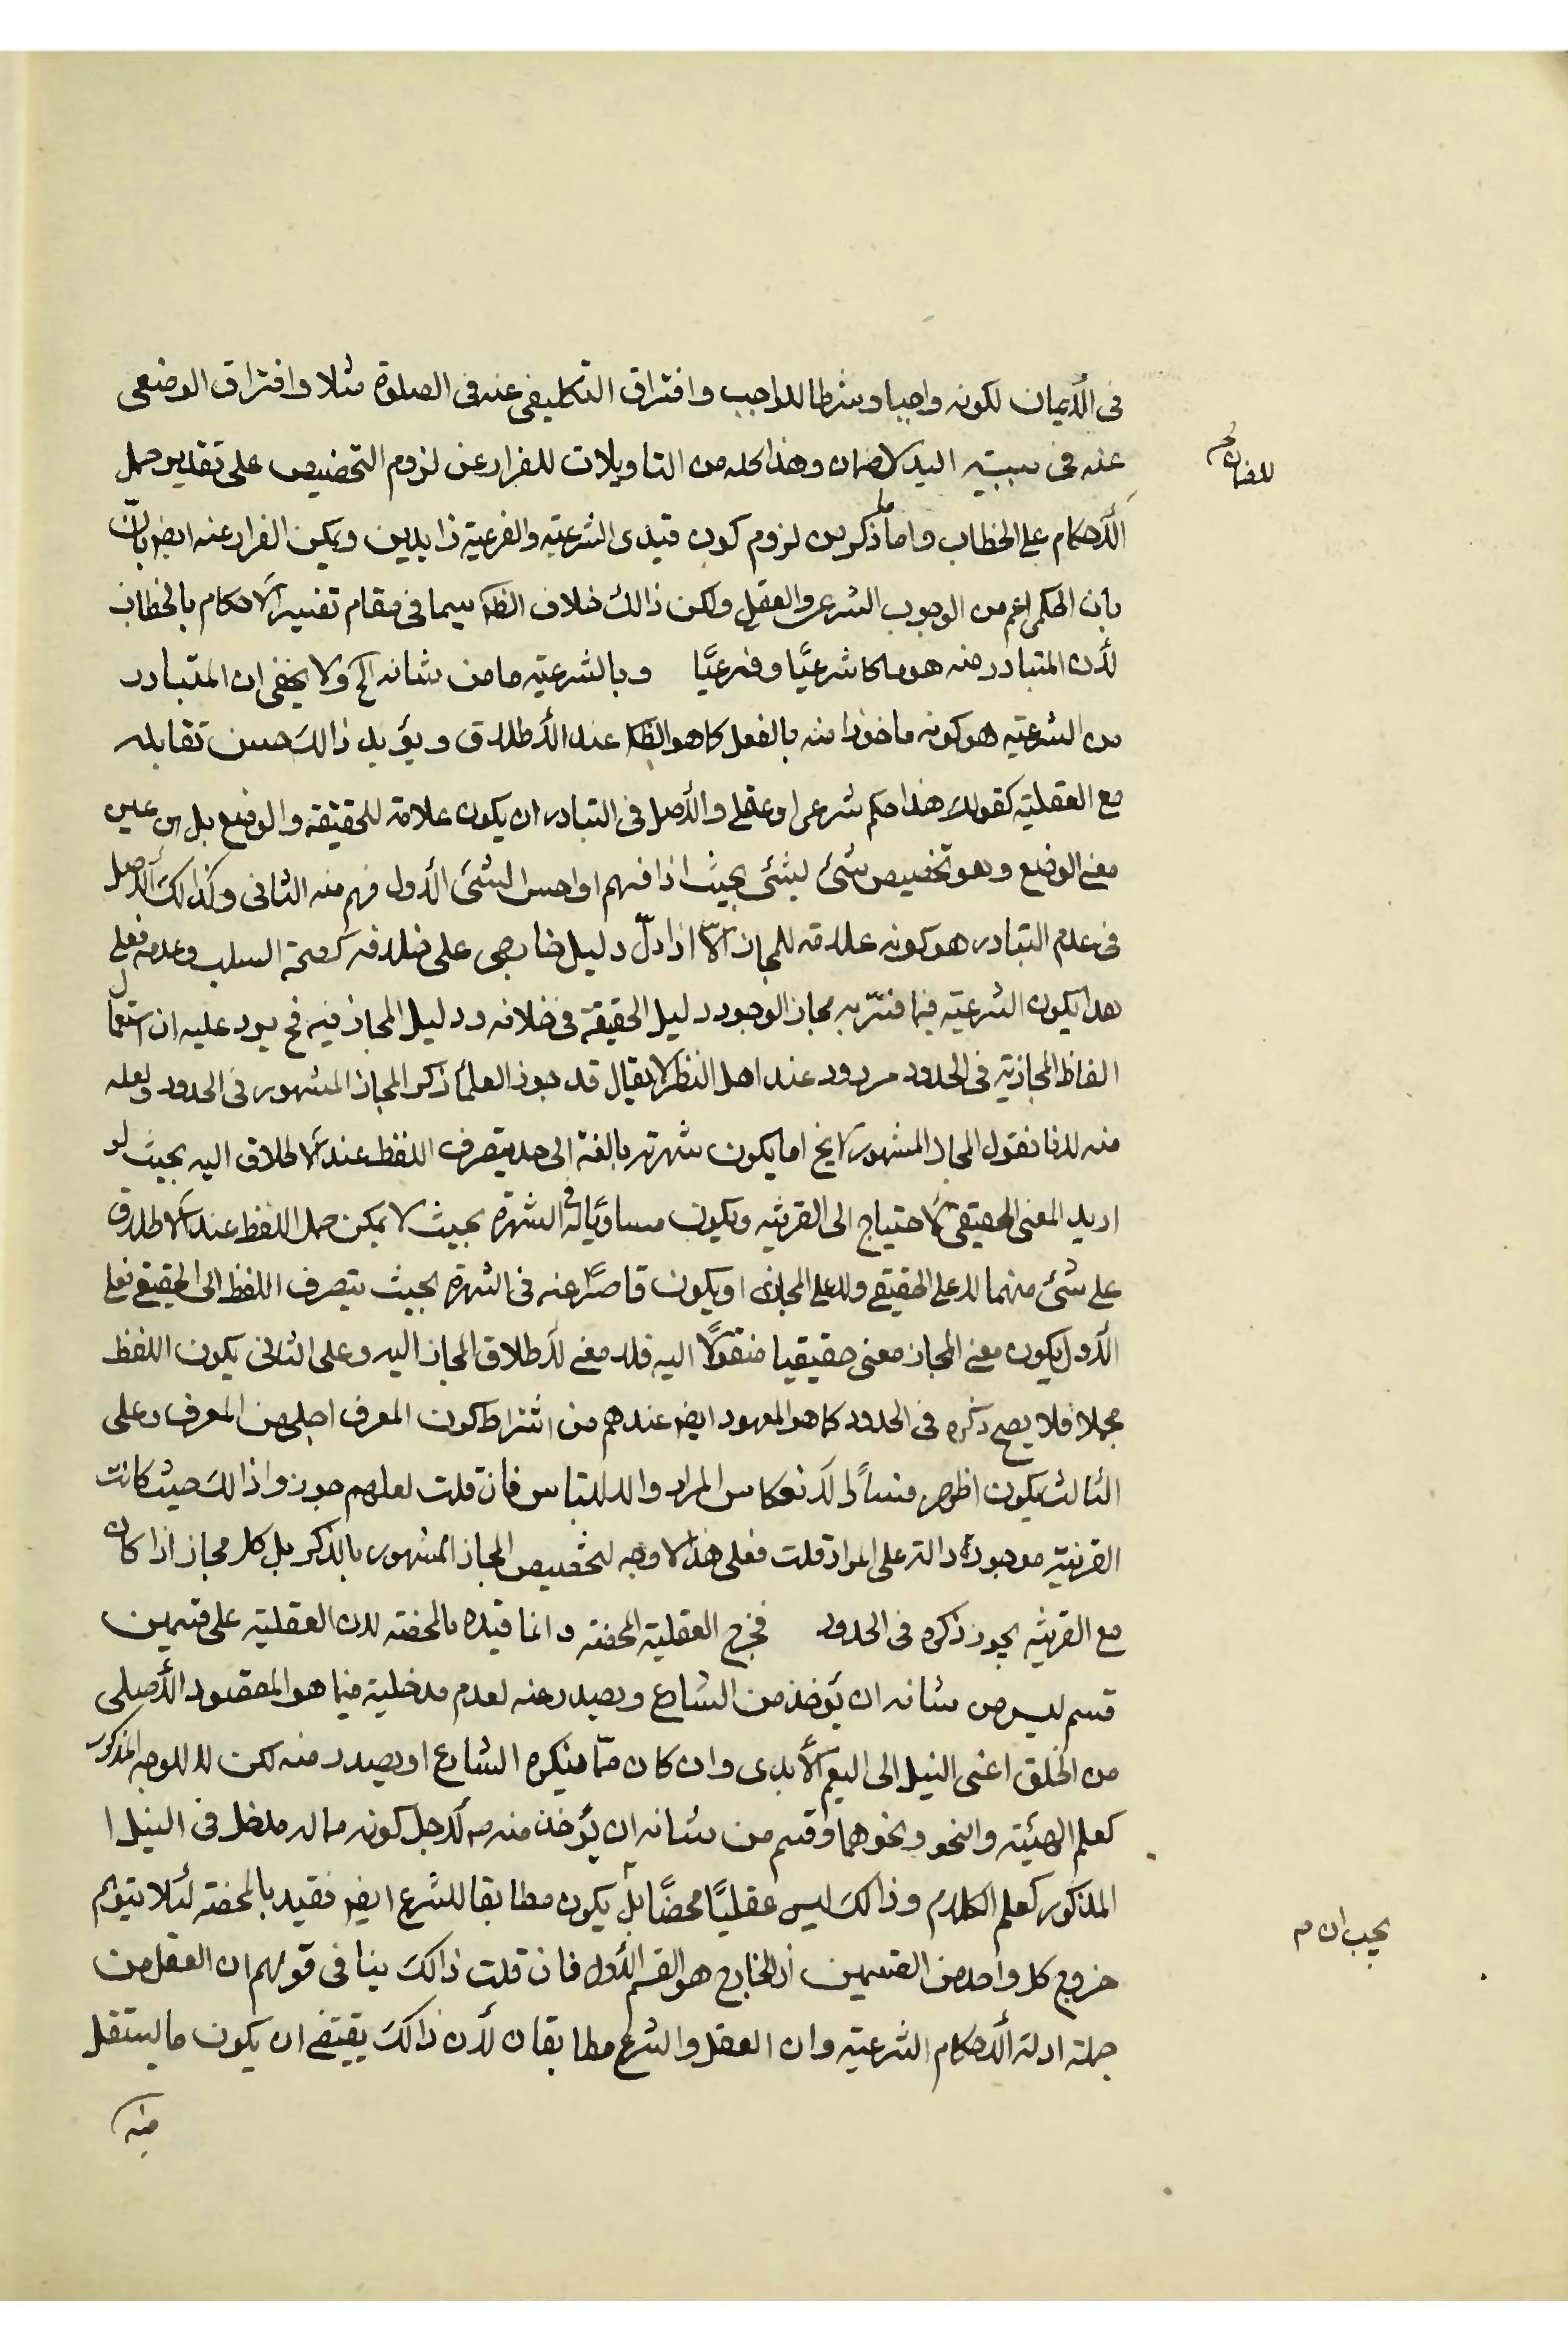 فى الأيمان لكونه واجبا وشرطا للواجب وافتراق التكليفى عنه فى الصلوة مثلا وافتراق الوضعى
عنه فى سببيّه اليد لاضمان وهذا كله من التاويلات للفرار عن لزوم التخصيص على تقدير حمل
للضمان م
الأحكام على الخطاب واما ما ذكر من لزوم كون قيدى الشرعيّه والفرعيّة زايدين ويمكن الفرار عنه ايضم بان
بان الحكمى اعم من الوجوب الشرعى والعقلى ولكن ذالك خلاف الظم سيما فى مقام تفسير الاحكام بالخطاب
لأن المتبادر منه هو ما كا شرعيًّا وفرعيًّا وبالشرعيّه ما من شانه الخ ولا يخفى ان المتبادر
من الشرعيّه هو كونه ماخوذا منه بالفعل كما هو الظم عند الأطلاق ويؤيد ذالك حسن تقابله
مع العقليّه كقولك هذا حكم شرعى او عقلى والأصل فى التبادر ان يكون علامة للحقيقة والوضع بل هى عين
معنى الوضع وهو تخصيص شئ بشئى بحيث اذا فهم او احس الشئ الأول فهم منه الثانى وكذالك الأصل
فى عدم التبادر هو كونه علامة للمجاز الّا اذا دلّ دليل خارجى على خلافه كصحة السلب وعدمه فعلى
هذا يكون الشرعيّه فيما فسّر به مجاز الوجود دليل الحقيقة فى خلافه ودليل المجاز فيه فح يرد عليه ان استعمال
الفاظ المجازيّه فى الحدود مردود عند اهل النظر لا يقال قد جوز العلماء ذكر المجاز المشهور فى الحدود ولعله
منه لانا نقول المجاز المشهور لا يخ اما يكون شهرته بالغة الى حد يتصرف اللفظ عند الاطلاق اليه بحيث لو
اريد المعنى الحقيقى لاحتياج الى القرينه ويكون مساويًا له فى الشهرة بحيث لا يمكن حمل اللفظ عند الاطلاق
على شئ منهما لا على الحقيقى ولا على المجازى او يكون قاصرًا عنه فى الشهرة بحيث يتصرف اللفظ الى الحقيقى فعلى
الأول يكون معنى المجاز معنى حقيقيا منقولًا اليه فلا معنى لأطلاق المجاز اليه وعلى الثانى يكون اللفظ
مجملا فلا يصح ذكره فى الحدود كما هو المعهود ايضم عندهم من اشتراط كون المعرف اجلى من المعرف وعلى
الثالث يكون اظهر فسادًا لأنعكاس المراد والالتباس فان قلت لعلهم جوزوا ذالك حيث كانت
القرينة موجودة دالة على المراد قلت فعلى هذا لا وجه لتخصيص المجاز المشهور بالذكر بل كل مجاز اذا كان
مع القرينه يجوز ذكره فى الحدود فخرج العقلية المحضة وانما قيده بالمحضه لان العقليّه على قسمين
قسم ليس من شانه ان يؤخذ من الشارع ويصدر عنه لعدم مدخلية فيما هو المقصود الأصلى
من الخلق اعنى النيل الى النعم الأبدى وان كان ممّا ينكره الشارع او يصدر منه لكن لا للوجه المذكور
كعلم الهيئة والنحو ونحوهما وقسم من شانه ان يؤخذ منه م لأجل كونه ماله مدخل فى النيل ا
المذكور كعلم الكلام وذالك ليس عقليًّا محضًا بل يكون مطابقا للشرع ايضم فقيد بالمحضة لئلا يتوهم
يجب ان م
خروج كل واحد من القسمين اذ الخارج هو القسم الأول فان قلت ذالك ينافى قولهم ان العقل من
جملة ادلة الأحكام الشرعيّه وان العقل والشرع مطابقان لأن ذالك يقتضى ان يكون ما يستقل